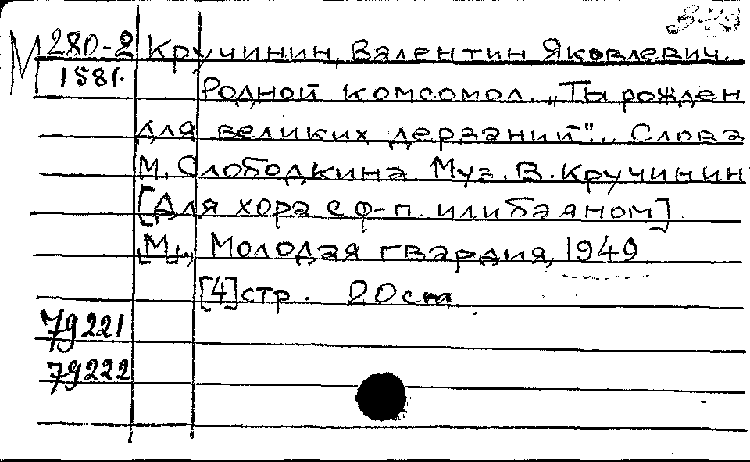 М 280-2 Кручинин, Валентин Яковлевич.
1581.
Родной комсомол. „Ты рожден
для великих дерзаний". Слова
М. Слободкина Муз. В. Кручинин
[Для хора с ф-п. или баяном]
[М.], Молодая гвардия, 1949.
[4] стр. 20 cm
79221
79222